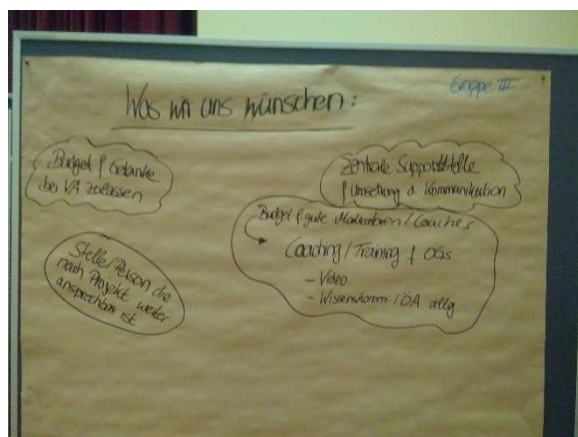 Gruppe III
Was wir uns wünschen:
Budget f Getränke
bei VA zulassen
Zentrale Supportstelle
f Umsetzung & Kommunikation
Budget f gute Moderatoren / Coaches
Coaching / Training f OGs
- Video
- Wissenskomm / ÖA allg
Stelle/Person die
nach Projekt weiter
ansprechbar ist